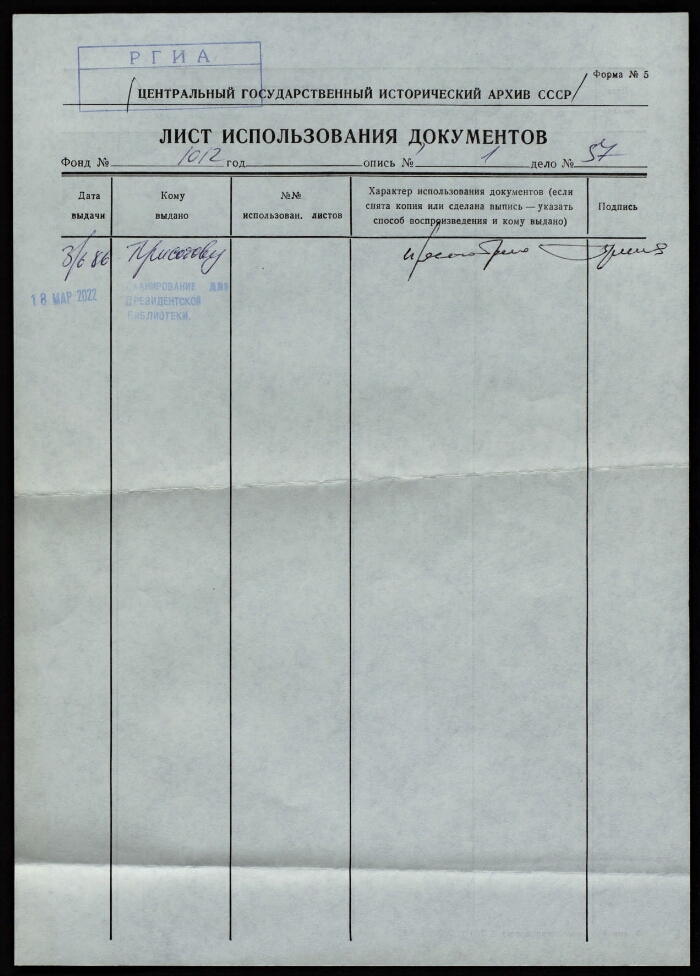 РГИА
Форма № 5
ЦЕНТРАЛЬНЫЙ ГОСУДАРСТВЕННЫЙ ИСТОРИЧЕСКИЙ АРХИВ СССР
ЛИСТ ИСПОЛЬЗОВАНИЯ ДОКУМЕНТОВ
Фонд № 1012 год опись № 1 дело № 57
Дата выдачи
Кому выдано
№№ использован. листов
Характер использования документов (если
снята копия или сделана выпись — указать
способ воспроизведения и кому выдано)
Подпись
3/6 86
18 МАР 2022
СКАНИРОВАНИЕ ДЛЯ
ПРЕЗИДЕНТСКОЙ
БИБЛИОТЕКИ.